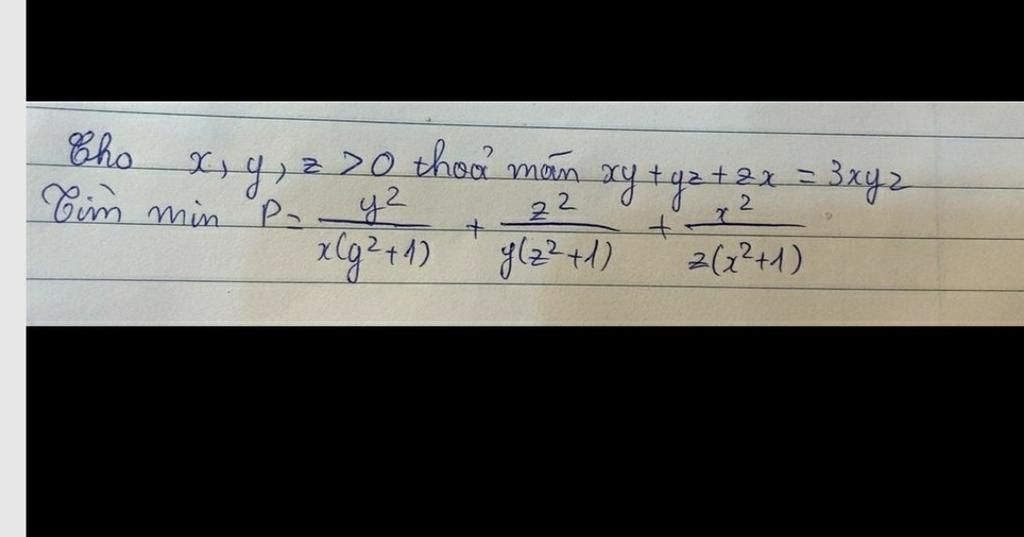 Cho x, y, z > 0 thoả mãn xy + yz + zx = 3xyz
Tìm min P = \frac{y^2}{x(y^2+1)} + \frac{z^2}{y(z^2+1)} + \frac{x^2}{z(x^2+1)}